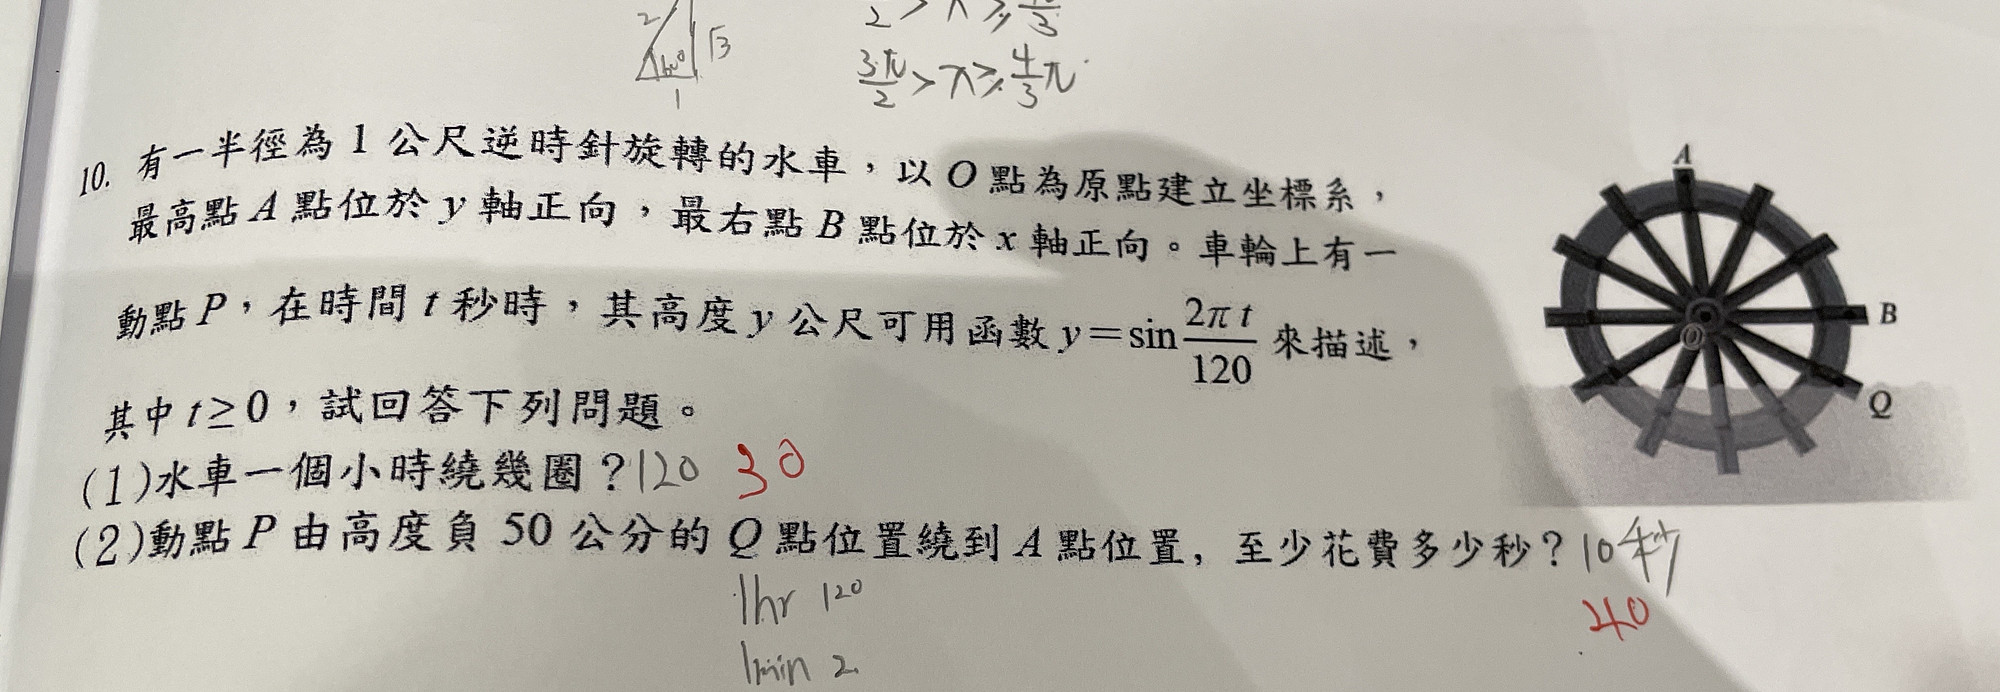 2
√3
1
3π/2 > x ≥ 4/3 π
10. 有一半徑為 1 公尺逆時針旋轉的水車，以 O 點為原點建立坐標系，
最高點 A 點位於 y 軸正向，最右點 B 點位於 x 軸正向。車輪上有一
動點 P，在時間 t 秒時，其高度 y 公尺可用函數 y＝sin 2π t/120 來描述，
其中 t≥0，試回答下列問題。
(1)水車一個小時繞幾圈？120 30
(2)動點 P 由高度負 50 公分的 Q 點位置繞到 A 點位置，至少花費多少秒？10秒
40
1hr 120
1min 2
A
B
O
Q